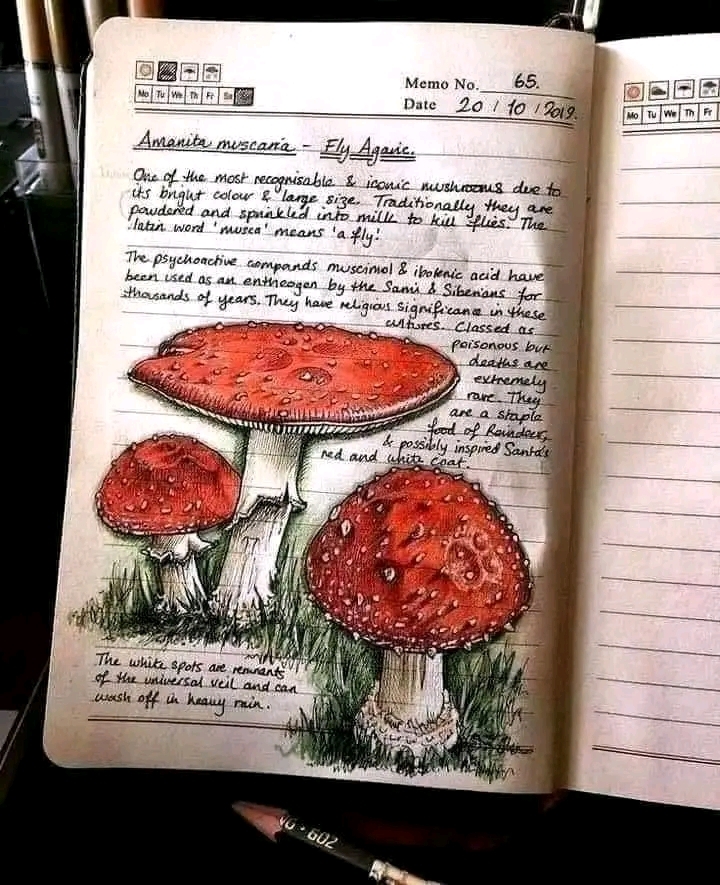 Memo No. 65.
Mo Tu We Th Fr Sa
Date 20 / 10 / 2019.
Amanita muscaria - Fly Agaric.
One of the most recognisable & iconic mushrooms due to
its bright colour & large size. Traditionally they are
powdered and sprinkled into milk to kill flies. The
latin word 'musca' means 'a fly'.
The psychoactive compands muscimol & ibotenic acid have
been used as an entheogen by the Sami & Siberians for
thousands of years. They have religious significance in these
cultures. Classed as
poisonous but
deaths are
extremely
rare. They
are a staple
food of Reindeer,
& possibly inspired Santa's
red and white coat.
The white spots are remnants
of the universal veil and can
wash off in heavy rain.
Mo Tu We Th Fr
602